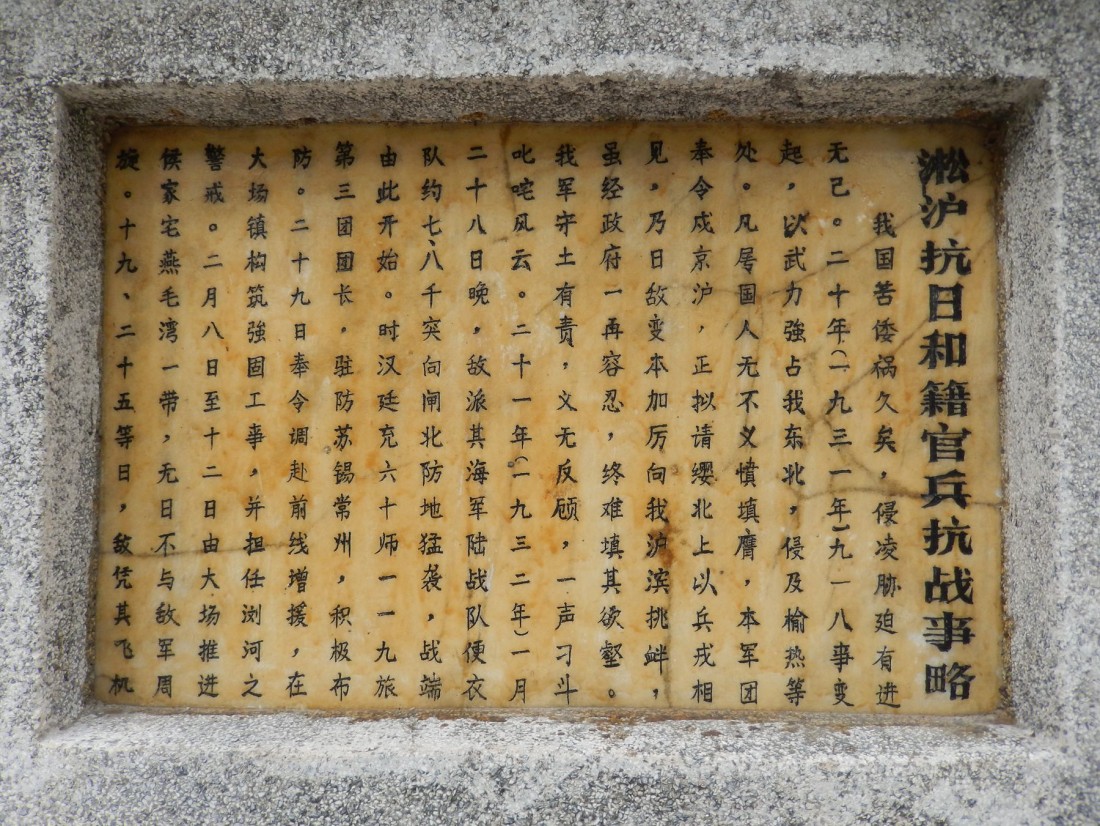 淞沪抗日和籍官兵抗战事略
我国苦倭祸久矣，侵凌胁迫有进
无已。二十年（一九三一年）九一八事变
起，以武力強占我东北，侵及榆热等
处。凡居国人无不义愤填膺，本军团
奉令戍京沪，正拟请缨北上以兵戎相
见，乃日敌变本加厉向我沪滨挑衅，
虽经政府一再容忍，终难填其欲壑。
我军守土有责，义无反顾，一声刁斗
叱咤风云。二十一年（一九三二年）一月
二十八日晚，敌派其海军陆战队便衣
队约七、八千突向闸北防地猛袭，战端
由此开始。时汉廷充六十师一一九旅
第三团团长，驻防苏锡常州，积极布
防。二十九日奉令调赴前线增援，在
大场镇构筑強固工事，并担任浏河之
警戒。二月八日至十二日由大场推进
侯家宅燕毛湾一带，无日不与敌军周
旋。十九、二十五等日，敌凭其飞机